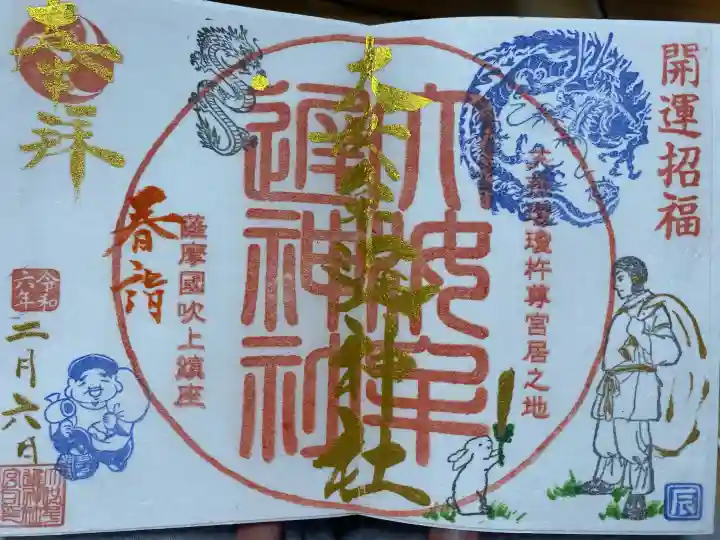 開運招福
天孫瓊瓊杵尊宮居之地
大汝牟遅神社
大汝牟遲神社
薩摩國吹上鎮座
春詣
奉拝
令和
六年
二月六日
辰